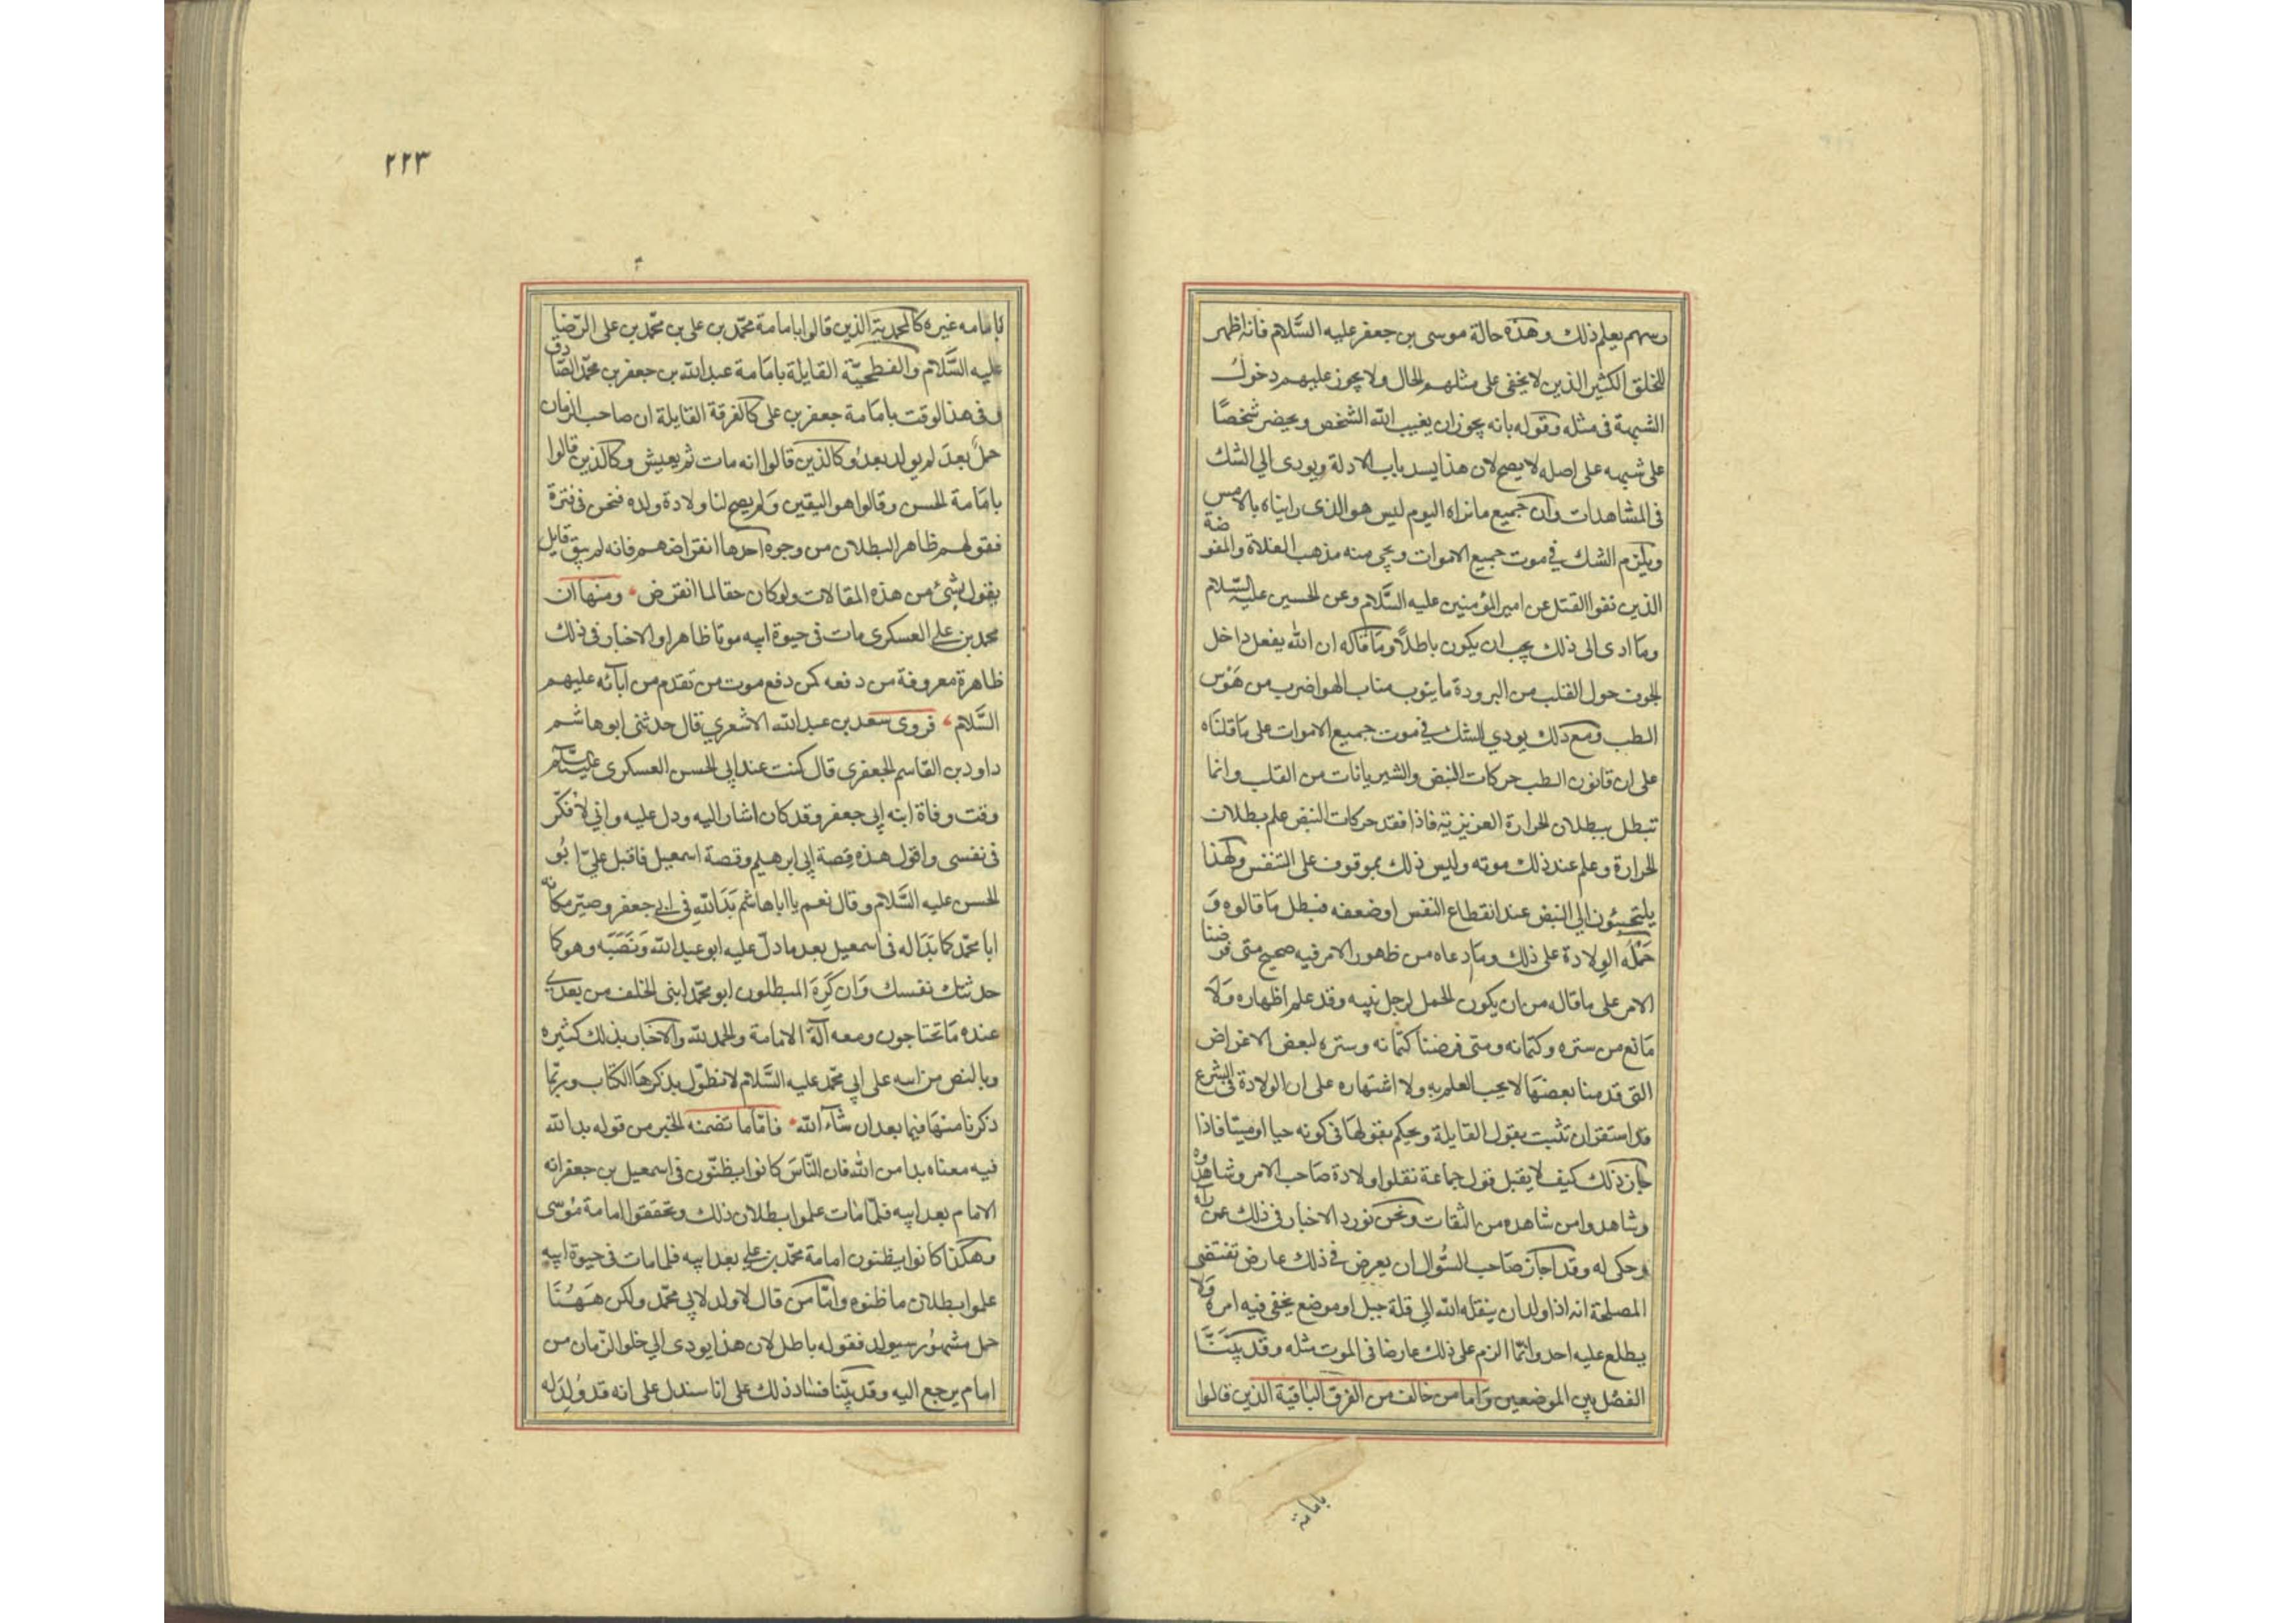 رسهم يعلم ذلك وهذه حالة موسى بن جعفر عليه السَّلام فانه اظهر
للخلق الكثير الذين لا يخفى على مثلهم الحال ولا يجوز عليهم دخول
الشبهة فى مثله وقوله بانه يجوز ان يغيب الله الشخص ويحضر شخصًا
على شبهه على اصله لا يصح لان هذا يسد باب الادلة ويودى الي الشك
فى المشاهدات وان جميع ما نراه اليوم ليس هو الذى رايناه بالامس
ويلزم الشك في موت جميع الاموات ويجى منه مذهب الغلاة والمفوضة
الذين نفوا القتل عن امير المؤمنين عليه السَّلام وعن الحسين عليه السلام
وما ادى الى ذلك يجب ان يكون باطلاً وما قاله ان الله يفعل داخل
الجوف حول القلب من البرودة ما ينوب مناب الهوا ضرب من هَوَس
الطب ومع ذلك يودي الشك في موت جميع الاموات على ما قلناه
على ان قانون الطب حركات النبض والشريانات من القلب وانما
تبطل ببطلان الحرارة الغريزية فاذا فقد حركات النبض علم بطلان
الحرارة وعلم عند ذلك موته وليس ذلك بموقوف على التنفس ولهذا
يلتجئون الي النبض عند انقطاع النفس او ضعفه فبطل ما قالوه وَ
حَمْلُه الولادة على ذلك وما دعاه من ظهور الامر فيه صحيح متى فرضنا
الامر على ما قاله من ان يكون الحمل لرجل نبيه وقد علم اظهاره ولا
مانع من ستره وكتمانه ومتى فرضنا كتمانه وستره لبعض الاغراض
التى قدمنا بعضها لا يجب العلم به ولا اشتهاره على ان الولادة فى الشرع
قد استقر ان تثبت بقول القابلة ويحكم بقولها فى كونه حيا او ميتا فاذا
جاز ذلك كيف لا يقبل قول جماعة نقلوا ولادة صاحب الامر وشاهدوه
وشاهدوا من شاهده من الثقات ونحن نورد الاخبار فى ذلك عمن رآه
وحكى له وقد اجاز صاحب السُّوال ان يعرض في ذلك عارض تقتضى
المصلحة انه اذا ولد ان ينقله الله الي قلة جبل او موضع يخفى فيه امره ولا
يطلع عليه احد وانّما الزم على ذلك عارضا فى الموت مثله وقد بيَّنَّا
الفصل بين الموضعين واما من خالف من الفرق الباقية الذين قالوا
بامامة
٢٢٣
بامامه غيره كالمحمدية الذين قالوا بامامة محمّد بن على بن محمّد بن على الرّضا
عليه السَّلام والفطحيّة القايلة بامامة عبد الله بن جعفر بن محمّد الصّادق
وفى هذا الوقت بامامة جعفر بن على كالفرقة القايلة ان صاحب الزمان
حملٌ بعدَ لم يولد بعدُ وكالذين قالوا انه مات ثم يعيش وكالذين قالوا
بامامة الحسن وقالوا هو اليقين ولم يصح لنا ولادة ولده فنحن فى فترة
فقولهم ظاهر البطلان من وجوه احدها انقراضهم فانه لم يبق قايل
يقول بشئ من هذه المقالات ولو كان حقا لما انقرض ومنها ان
محمد بن علي العسكرى مات فى حيوة ابيه موتا ظاهرا والاخبار فى ذلك
ظاهرة معروفة من دفعه كمن دفع موت من تقدم من آبائه عليهم
السَّلام فروى سعد بن عبد الله الاشعري قال حدثنى ابو هاشم
داود بن القاسم الجعفرى قال كنت عند ابى الحسن العسكرى عليه السّلام
وقت وفاة ابنه ابي جعفر وقد كان اشار اليه ودل عليه وانى لأفكّر
فى نفسى واقول هذه قصة ابي ابرهيم وقصة اسمعيل فاقبل علىّ ابُو
الحسن عليه السَّلام وقال نعم يا ابا هاشم بَدَا لله فى ابى جعفر وصيّر مكانه
ابا محمّد كما بَدَا له فى اسمعيل بعد ما دلّ عليه ابو عبد الله ونَصَبَه وهو كما
حدثتك نفسك وان كَرِهَ المبطلون ابو محمّد ابنى الخلف من بعدى
عنده ما تحتاجون ومعه آلة الامامة والحمد لله والاخبار بذلك كثيره
وبالنص من ابيه على ابي محمّد عليه السَّلام لا نطوّل بذكرها الكتاب وربّما
ذكرنا منها فيما بعد ان شآء الله فامّا ما تضمنه الخبر من قوله بدا لله
فيه معناه بدا من الله فان النّاس كانوا يظنّون فى اسمعيل بن جعفر انه
الامام بعد ابيه فلمّا مات علموا بطلان ذلك وتحققوا امامة مُوسى
وهكذا كانوا يظنون امامة محمّد بن علي بعد ابيه فلما مات فى حيوة ابيه
علموا بطلان ما ظنوه وامّا من قال لا ولد لابي محمّد ولكن هَهُنَا
حمل مشهُور سيولد فقوله باطل لان هذا يودى الي خلو الزّمان من
امام يرجع اليه وقد بيّنا فساد ذلك على انا سندل على انه قد وُلِدَ له